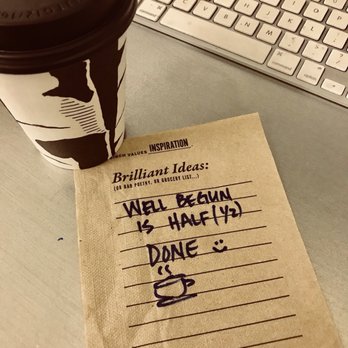 VALUES INSPIRATION
Brilliant Ideas:
(OR BAD POETRY, OR GROCERY LIST...)
WELL BEGUN
IS HALF (1/2)
DONE